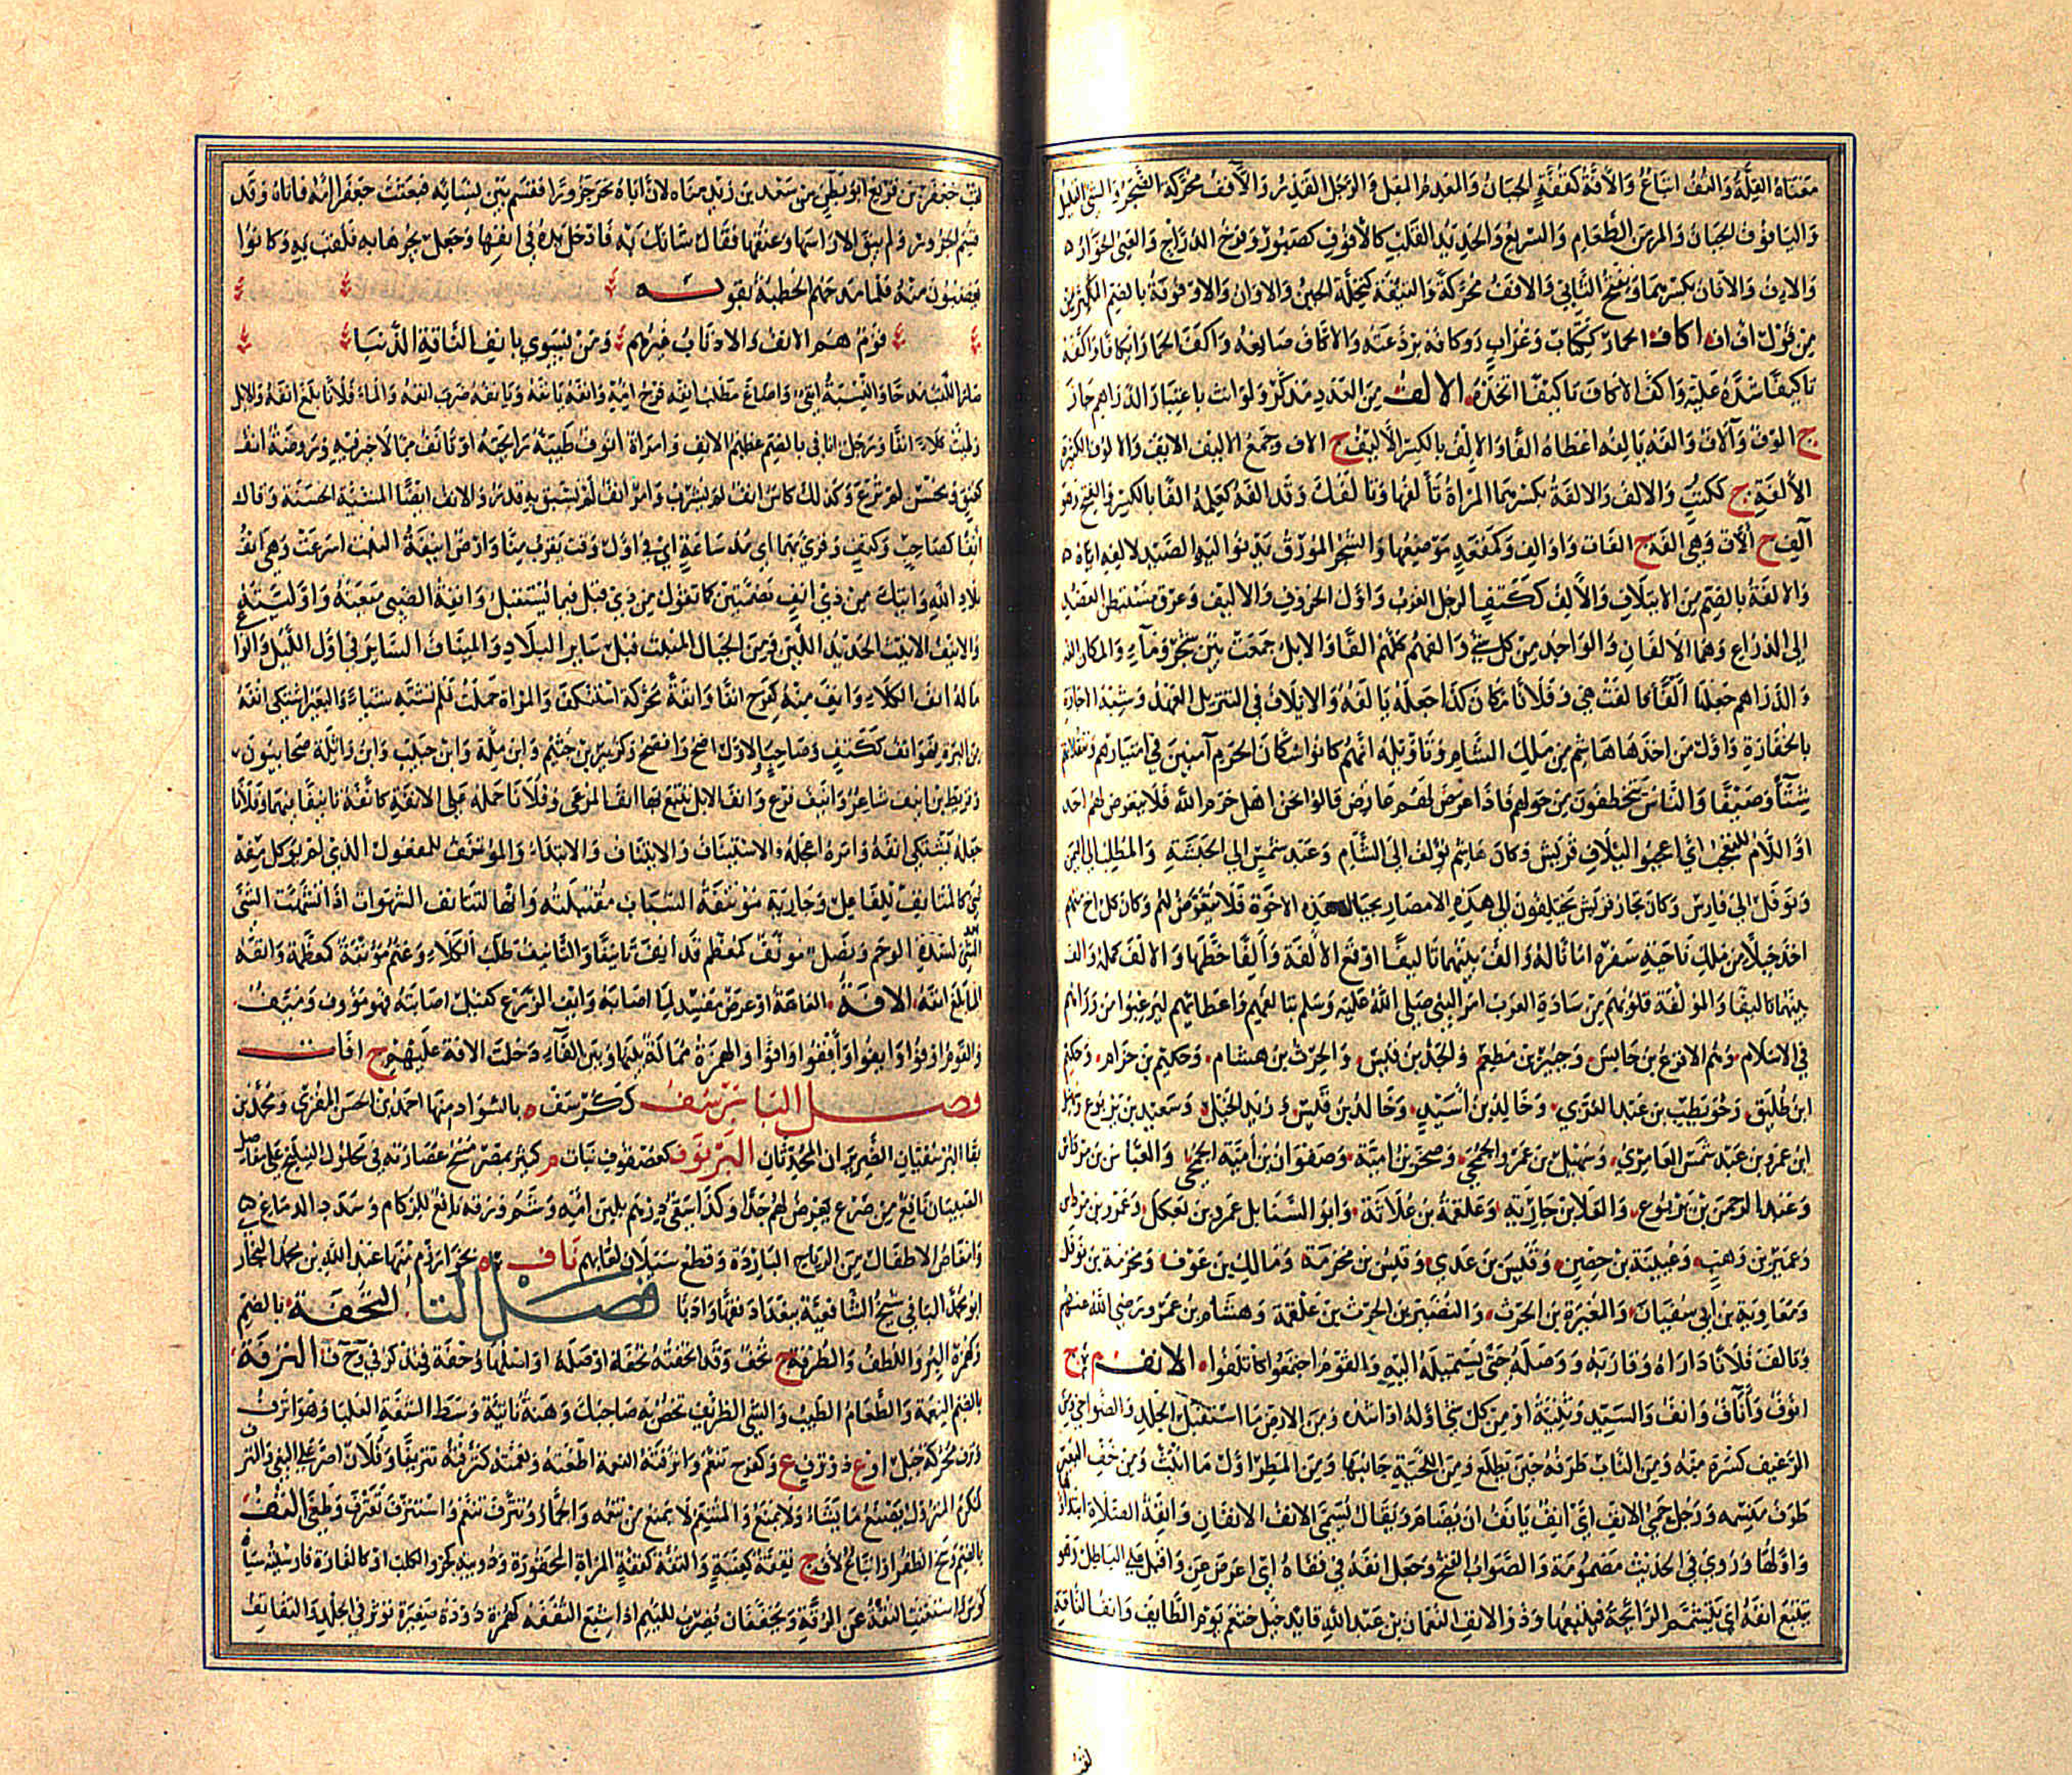 معناه القلة والتف اتباع والافة كقفة الجبان والمعدم المقل والرجل القذر والافف محركة الضجر والشئ القليل
واليافوف الجبان والمر من الطعام والسريع والحديد القلب كالافوف كصبور وفرخ الدراج والعيي الخوار
والاف والافان بكسرهما ويفتح الثاني والافف محركة والتئفة كتحلة الحين والاوان والاوفوفة بالضم المكثر من
من قول اف اف اكاف الحمار ككتاب وغراب ووكافه برذعته والاكاف صانعه واكف الحمار ايكافا واكفه
تاكيفا شده عليه واكف الاكاف تاكيفا اتخذه الالف من العدد مذكر ولو انث باعتبار الدراهم جاز
ج الوف وآلاف والفه يالفه اعطاه الفا والالف بالكسر الاليف ج الاف وجمع الاليف الايف والالوف الكثير
الالفة ج ككتب والالف والالفة بكسرهما المراة تألفها وتالفك وقد الفه كعلمه الفا بالكسر والفتح وهو
آلف ج ألاف وهي الفة ج الفات واوالف وكمقعد موضعها والشجر المورق يدنو اليه الصيد لالفه اياه
والالفة بالضم من الائتلاف والالف ككتف الرجل العزب واول الحروف والاليف وعرق مستبطن العضد
الى الذراع وهما الالفان والواحد من كل شئ والفهم كملهم الفا والابل جمعت بين شجر وماء والمكان الفه
والدراهم جعلها الفا فالفت هي وفلانا مكان كذا جعله يالفه والايلاف في التنزيل العهد وشبه الاجازة
بالخفارة واول من اخذها هاشم من ملك الشام وتاويله انهم كانوا سكان الحرم آمنين في امتيارهم وتنقلاتهم
شتآء وصيفا والناس يتخطفون من حولهم فاذا عرض لهم عارض قالوا نحن اهل حرم الله فلا يتعرض لهم احد
او اللام للتعجب أي اعجبوا لايلاف قريش وكان هاشم يؤلف الى الشام وعبد شمس الى الحبشة والمطلب الى اليمن
ونوفل الى فارس وكان تجار قريش يختلفون الى هذه الامصار بحبال هذه الاخوة فلا يتعرض لهم وكان كل اخ منهم
اخذ حبلا من ملك ناحية سفره امانا له والف بينهما تاليفا اوقع الالفة وألفا خطها والالف كمله والف
بينهما تاليفا والمؤلفة قلوبهم من سادة العرب امر النبي صلى الله عليه وسلم بتالفهم واعطائهم ليرغبوا من وراءهم
في الاسلام وهم الاقرع بن حابس وجبير بن مطعم والجد بن قيس والحرث بن هشام وحكيم بن حزام وحكيم
ابن طليق وحويطب بن عبد العزى وخالد بن اسيد وخالد بن قيس وزيد الخيل وسعيد بن يربوع وسهيل
ابن عمرو بن عبد شمس العامري وسهيل بن عمرو الجمحي وصخر بن امية وصفوان بن أمية الجمحي والعباس بن مرداس
وعبد الرحمن بن يربوع والعلا بن جارية وعلقمة بن علاثة وابو السنابل عمرو بن بعكك وعمرو بن مرداس
وعمير بن وهب وعيينة بن حصن وقيس بن عدي وقيس بن مخرمة ومالك بن عوف ومخرمة بن نوفل
ومعاوية بن ابي سفيان والمغيرة بن الحرث والنضير بن الحرث بن علقمة وهشام بن عمرو رضي الله عنهم
وتالف فلانا داراه وقاربه ووصله حتى يستميله اليه والقوم اجتمعوا كائتلفوا الانف م ج
انوف وأناف وانف والسيد وثنية او من كل شئ اوله او اشده ومن الارض ما استقبل الجلد والضواحي ومن
الرغيف كسرة منه ومن الناب طرفه حين يطلع ومن اللحية جانبها ومن المطر اول ما انبت ومن خف البعير
طرف منسمه ورجل حمي الانف اي آنف يانف ان يضام ويقال لسمي الانف الانفان وانفة الصلاة ابتداؤها
واولها وروي في الحديث مضمومة والصواب الفتح وجعل انفه في قفاه اي اعرض عن واقبل على الباطل وهو
يتتبع انفه اي يتشمم الرائحة فيتبعها وذو الانف النعمان بن عبد الله قائد خيل خثعم يوم الطائف وانف الناقة
لقب
لقب جعفر بن قريع ابو بطن من سعد بن زيد مناة لان اباه نحر جزورا فقسم بين نسائه فبعثت جعفرا امه فاتاه وقد
قسم الجزور ولم يبق الا راسها وعنقها فقال شانك به فادخل يده في انفها وجعل يجرها به فلقب به وكانوا
يغضبون منه فلما مدحهم الحطيئة بقوله
قوم هم الانف والاذناب غيرهم ومن يسوي بانف الناقة الذنبا
صار اللقب مدحا والنسبة انفي واضاع مطلب انفه فرج امه وانفه يانفه ويانفه ضرب انفه والماء فلانا بلغ انفه والابل
وطئت كلاء انفا ورجل انافي بالضم عظيم الانف وامراة انوف طيبة رائحته او تانف مما لا خير فيه وروضة انف
كعنق ومحسن لم ترع وكذلك كاس انف لم يشرب وامر انف لم يسبق به قدر والانف ايضا المشية الحسنة وقال
آنفا كصاحب وكتف وقرئ بهما اي مذ ساعة اي في اول وقت يقرب منا وارض انيفة النبت اسرعت وهي آنف
بلاد الله واتيك من ذي انف بضمتين كما تقول من ذي قبل فيما يستقبل وانفة الصبي ميعته واوليته
والانيف الانيث الحديد اللين ومن الجبال المنبت قبل سائر البلاد والمئناف السائر في اول الليل والراعي
ماله انف الكلاء وانف منه كفرح انفا وانفة محركة استنكف والمراة حملت فلم تشته شيئا والبعير اشتكى انفه
من البرة فهو انف ككتف وصاحب والاول اصح وافصح وكزبير بن جشم وابن ملة وابن حبيب وابن واثلة صحابيون
وقريط بن انيف شاعر وانيف فرع وانف الابل تتبع بها انف المرعى وفلانا حمله على الانفة كانفه تانيفا فيهما وفلانا
جعله يشتكي انفه وامره اعجله والاستئناف والائتناف الابتداء والمؤتنف للمفعول الذي لم يؤكل منه
شئ كالمتانف للفاعل وجارية مؤتنفة الشباب مقتبلته وانها لتتانف الشهوات اذا تشهت الشئ
الشئ لشدة الوحم ونصل مؤنف كمعظم قد انف تانيفا والتانيف طلب الكلاء وغنم مؤنفة كمعظمة وانفه
الماء بلغ انفه الافة العاهة او عرض مفسد لما اصابه وايف الزرع كقيل اصابته فهو مؤوف ومئيف
والقوم اوفوا وايفوا وأففوا وافوا والهمزة ممالة بينها وبين الفاء دخلت الافة عليهم ج افات
فصل البا برسف كرسف بالسواد منها احمد بن الحسن المقرئ ومحمد بن
بقا البرسفيان الضريران المحدثان البرنوف كعصفور نبات م كثير بمصر مسح عصارته في محلول السليخ على مفاصل
الصبيان نافع من صرع يعرض لهم جدا وكذا سقي درهم بلبن امه وشم ورقه نافع للزكام وسدد الدماغ
وامغاص الاطفال من الرياح الباردة وقطع سيلان لعابهم باف بخوارزم منها عبد الله بن محمد البخاري
ابو محمد البافي شيخ الشافعية ببغداد فقها وادبا فصل التا التحفة بالضم
وكهمزة البر واللطف والطرفة ج تحف وقد اتحفته تحفة او اصله او اصلها وحفة فيذكر في وح ف الترفة
بالضم النعمة والطعام الطيب والشئ الظريف تخص به صاحبك وهنة ناتئة وسط الشفة العليا وهو اترف
وترف محركة جبل او ع وذو ترف ع وكفرح تنعم واترفته النعمة اطغته ونعمته كترفته تتريفا وفلان اصر على البغي والمترف
كمكرم المتروك يصنع ما يشاء ولا يمنع والمتنعم لا يمنع من تنعمه والجبار وتترف تنعم واستترف تغترف وطغى التف
بالضم وسخ الظفر او اتباع لاف ج تففة كعنبة والتفة كقفة المراة المحقورة ودويبة كجرو الكلب او كالفارة فارسيته سياه
كوش استغنت التفة عن الرفة ويخففان يضرب للئيم اذا شبع التففة كهمزة دودة صغيرة تؤثر في الجلد والتفاتف